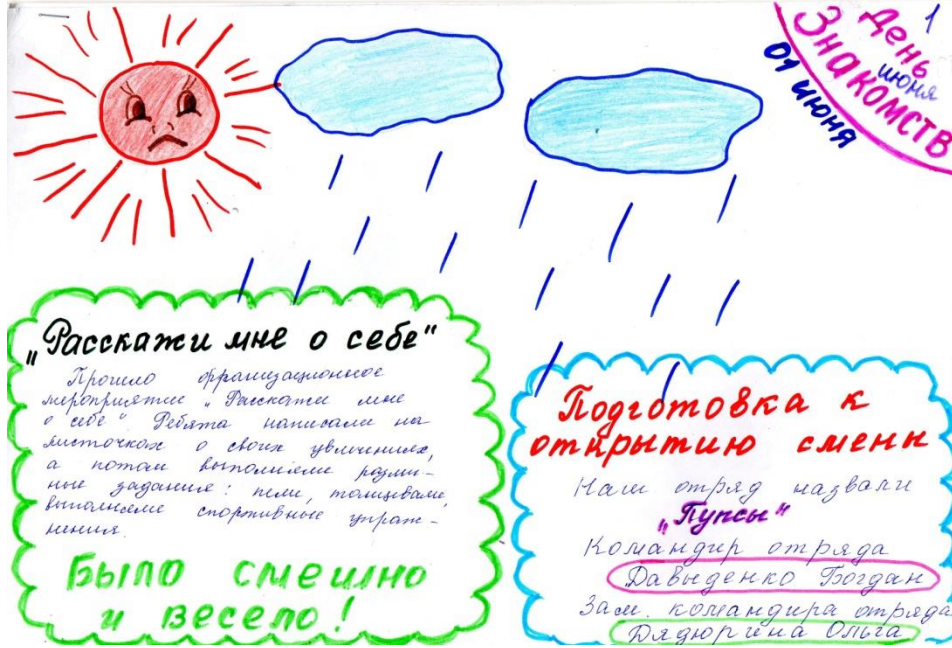 1
День
июня
Знакомств
01 июня
„Расскажи мне о себе"
Прошло организационное
мероприятие „Расскажи мне
о себе". Ребята написали на
листочках о своих увлечениях,
а потом выполняли различ-
ные задания: пели, танцевали,
выполняли спортивные упраж-
нения.
Было смешно
и весело!
Подготовка к
открытию смены
Наш отряд назвали
„Пупсы"
Командир отряда
Давыденко Богдан
Зам. командира отряда
Дядюргина Ольга